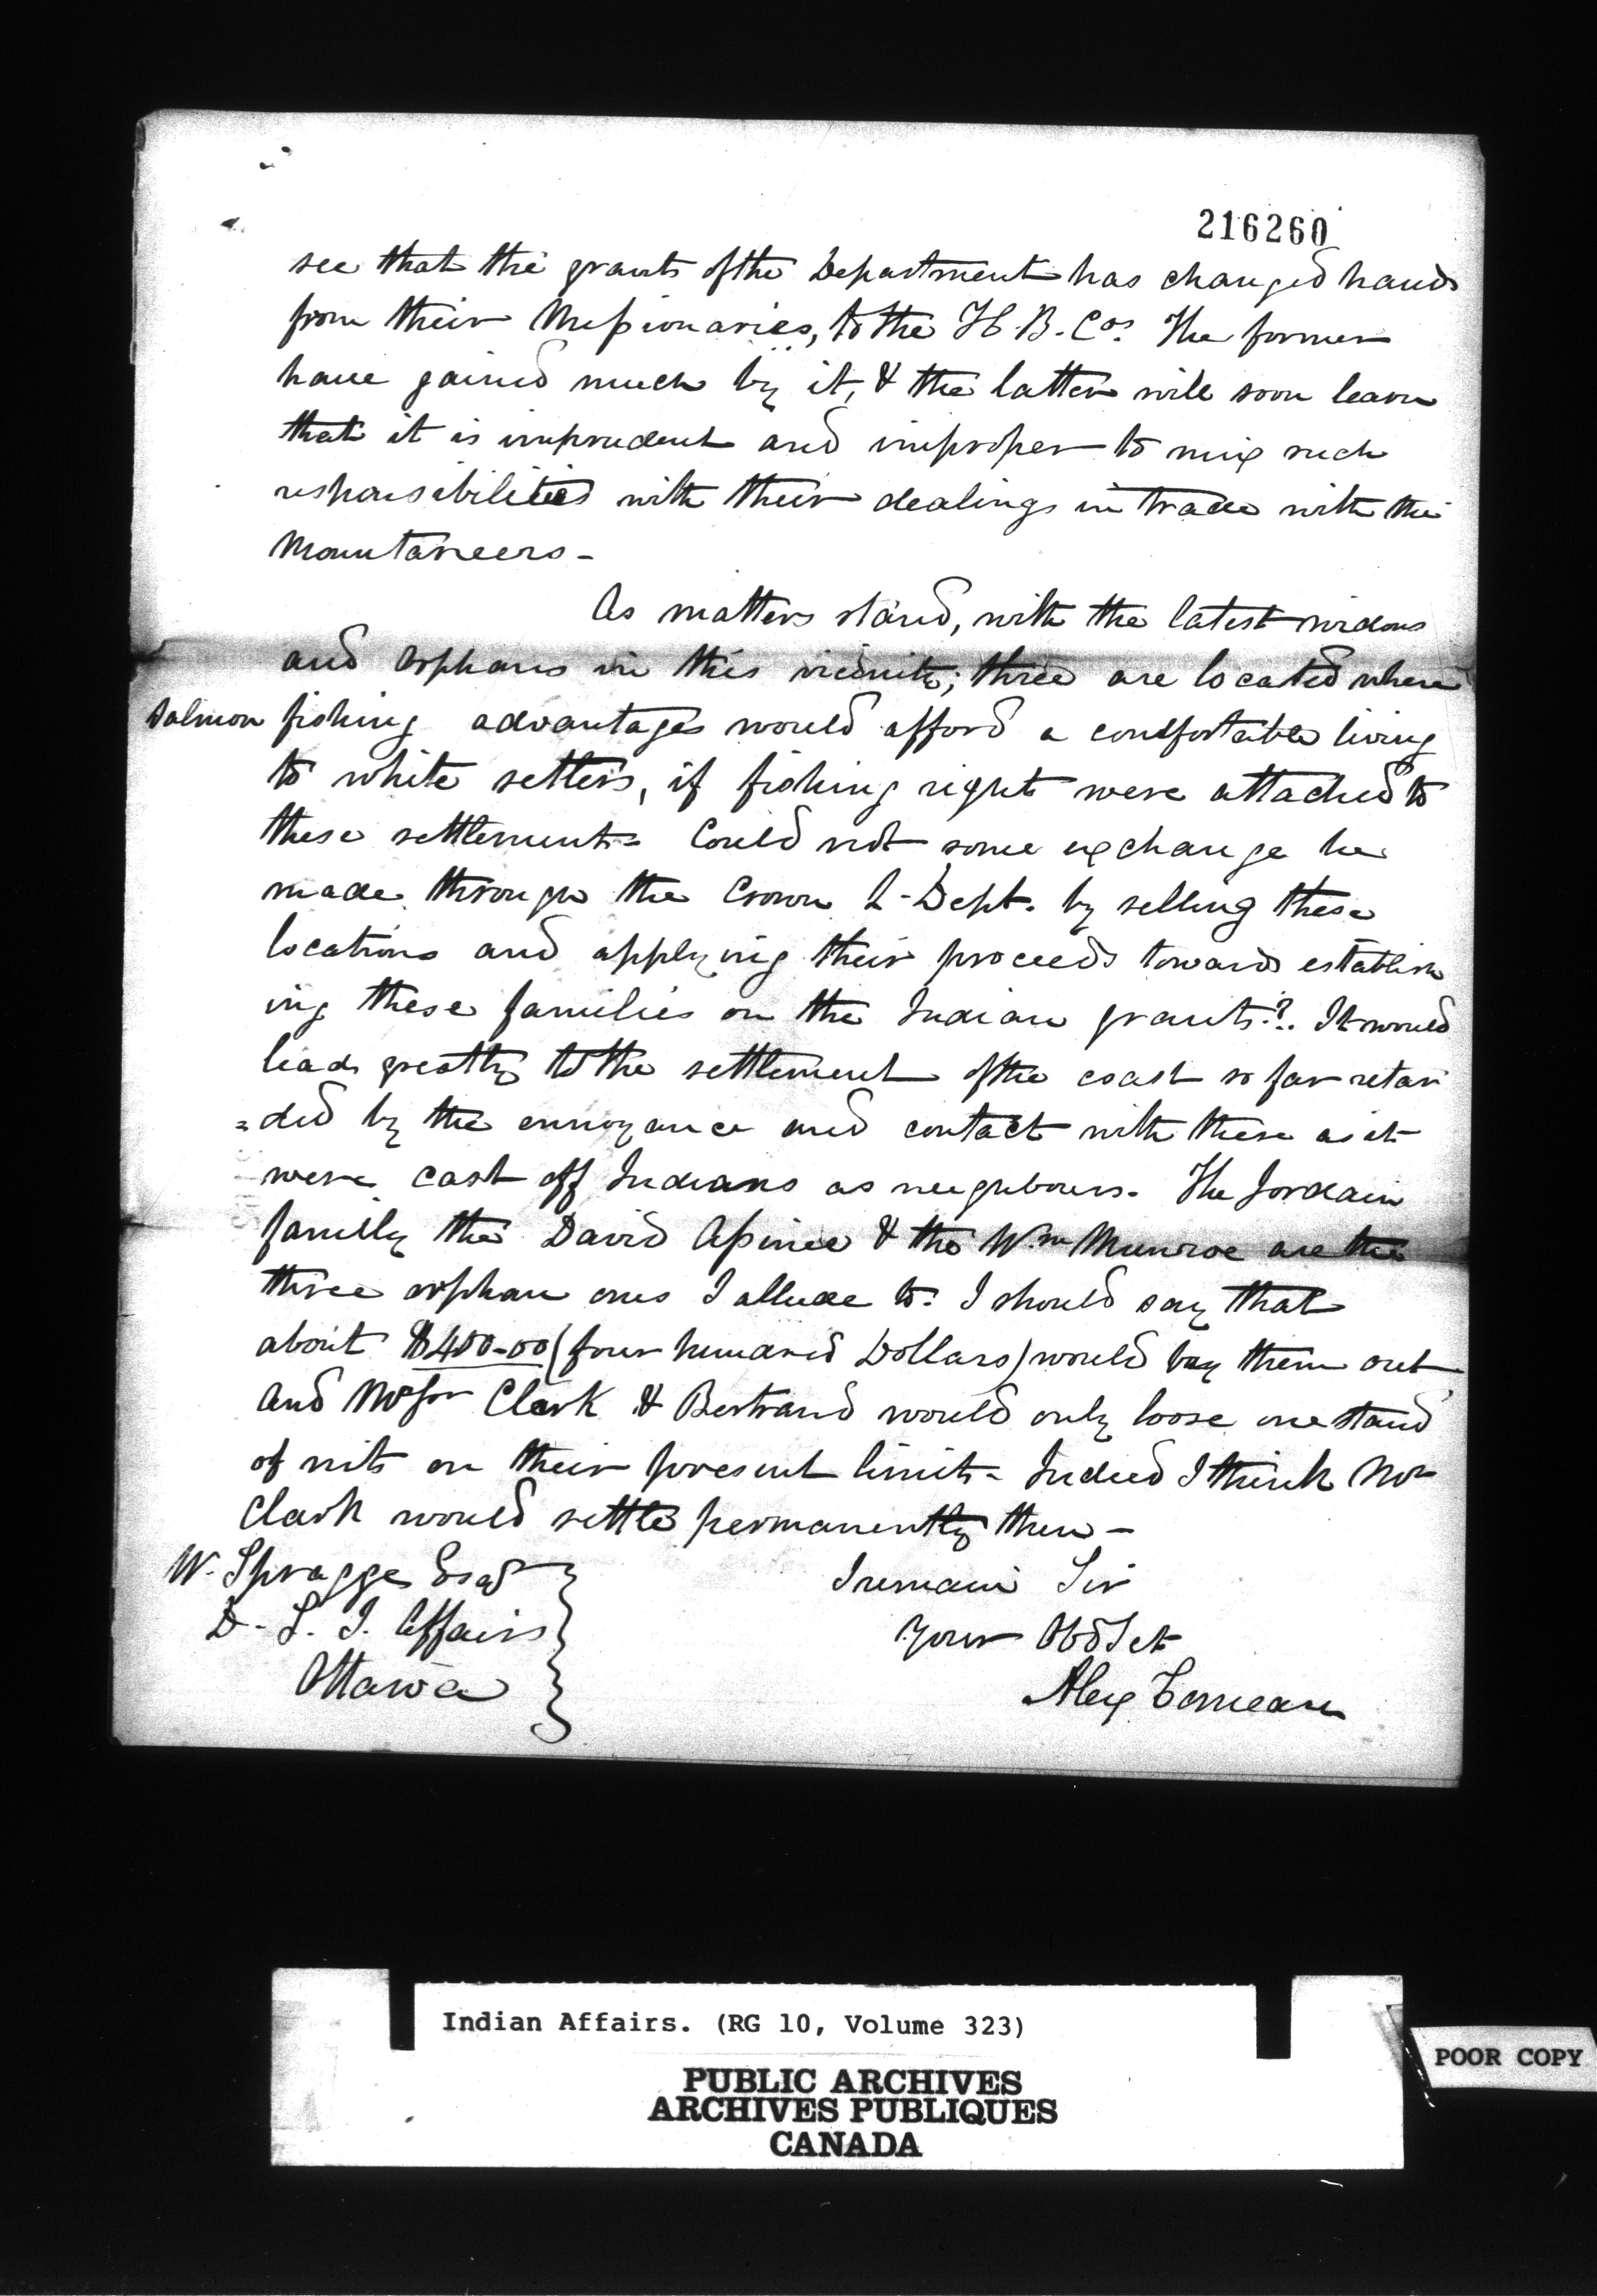 216260
see that the grants of the Department has changed hands
from their Missionaries, to the H. B. Cos. The former
have gained much by it, & the latter will soon learn
that it is imprudent and improper to mix such
responsibilities with their dealings in trade with the
Mountaneers -
As matters stand, with the latest widows
and orphans in this vicinity; three are located where
salmon fishing advantages would afford a comfortable living
to white settlers, if fishing right were attached to
these settlements - Could not some exchange be
made through the Crown L - Dept. by selling these
locations and applying their proceeds towards establish
ing these families on the Indian grants?. It would
lead greatly to the settlement of the coast so far retar
=ded by the annoyance and contact with these as it
were cast off Indians as neighbours. The Jordain
family the David Apinee & the Wm Munroe are the
three orphan ones I allude to. I should say that
about $400-00 (four hundred Dollars) would buy them out
and Messrs Clark & Bertrand would only loose one stand
of nets on their present limits - Indeed I think Mr
Clark would settle permanently then -
W. Spragge Esqr
D. S. I. Affairs
Ottawa
I remain Sir
Your Obd Svt
Alex Comeau
Indian Affairs. (RG 10, Volume 323)
PUBLIC ARCHIVES
ARCHIVES PUBLIQUES
CANADA
POOR COPY